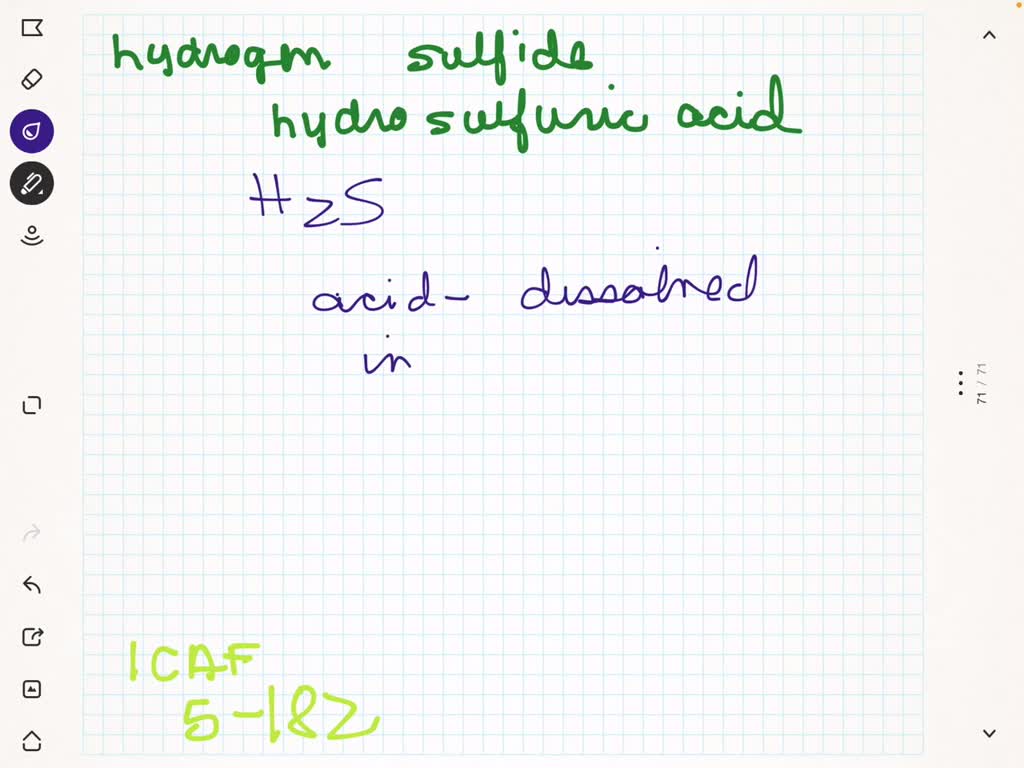 hydrogen sulfide
hydrosulfuric acid
H2S
acid - dissolved
in
71 / 71
ICAF
5-182